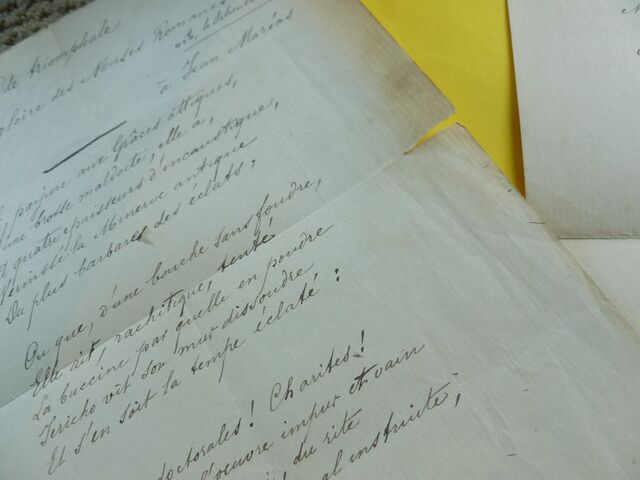 de triomphale
gloire des Muses Romanes
à Jean Moréas
parjure aux Grâces attiques,
une brosse maldocte, elle a,
quatre épaisseurs d'encaustique,
Vernissé la Minerve antique
Du plus barbare des éclats :
Ou que, d'une bouche sans foudre,
Elle ait, rachitique, tenté
La buccine par quelle en poudre
Jéricho vit son mur dissoudre
Et s'en soit la tempe éclaté :
doctorales ! Charites !
l'oeuvre impur et vain
du rite
al instruite,